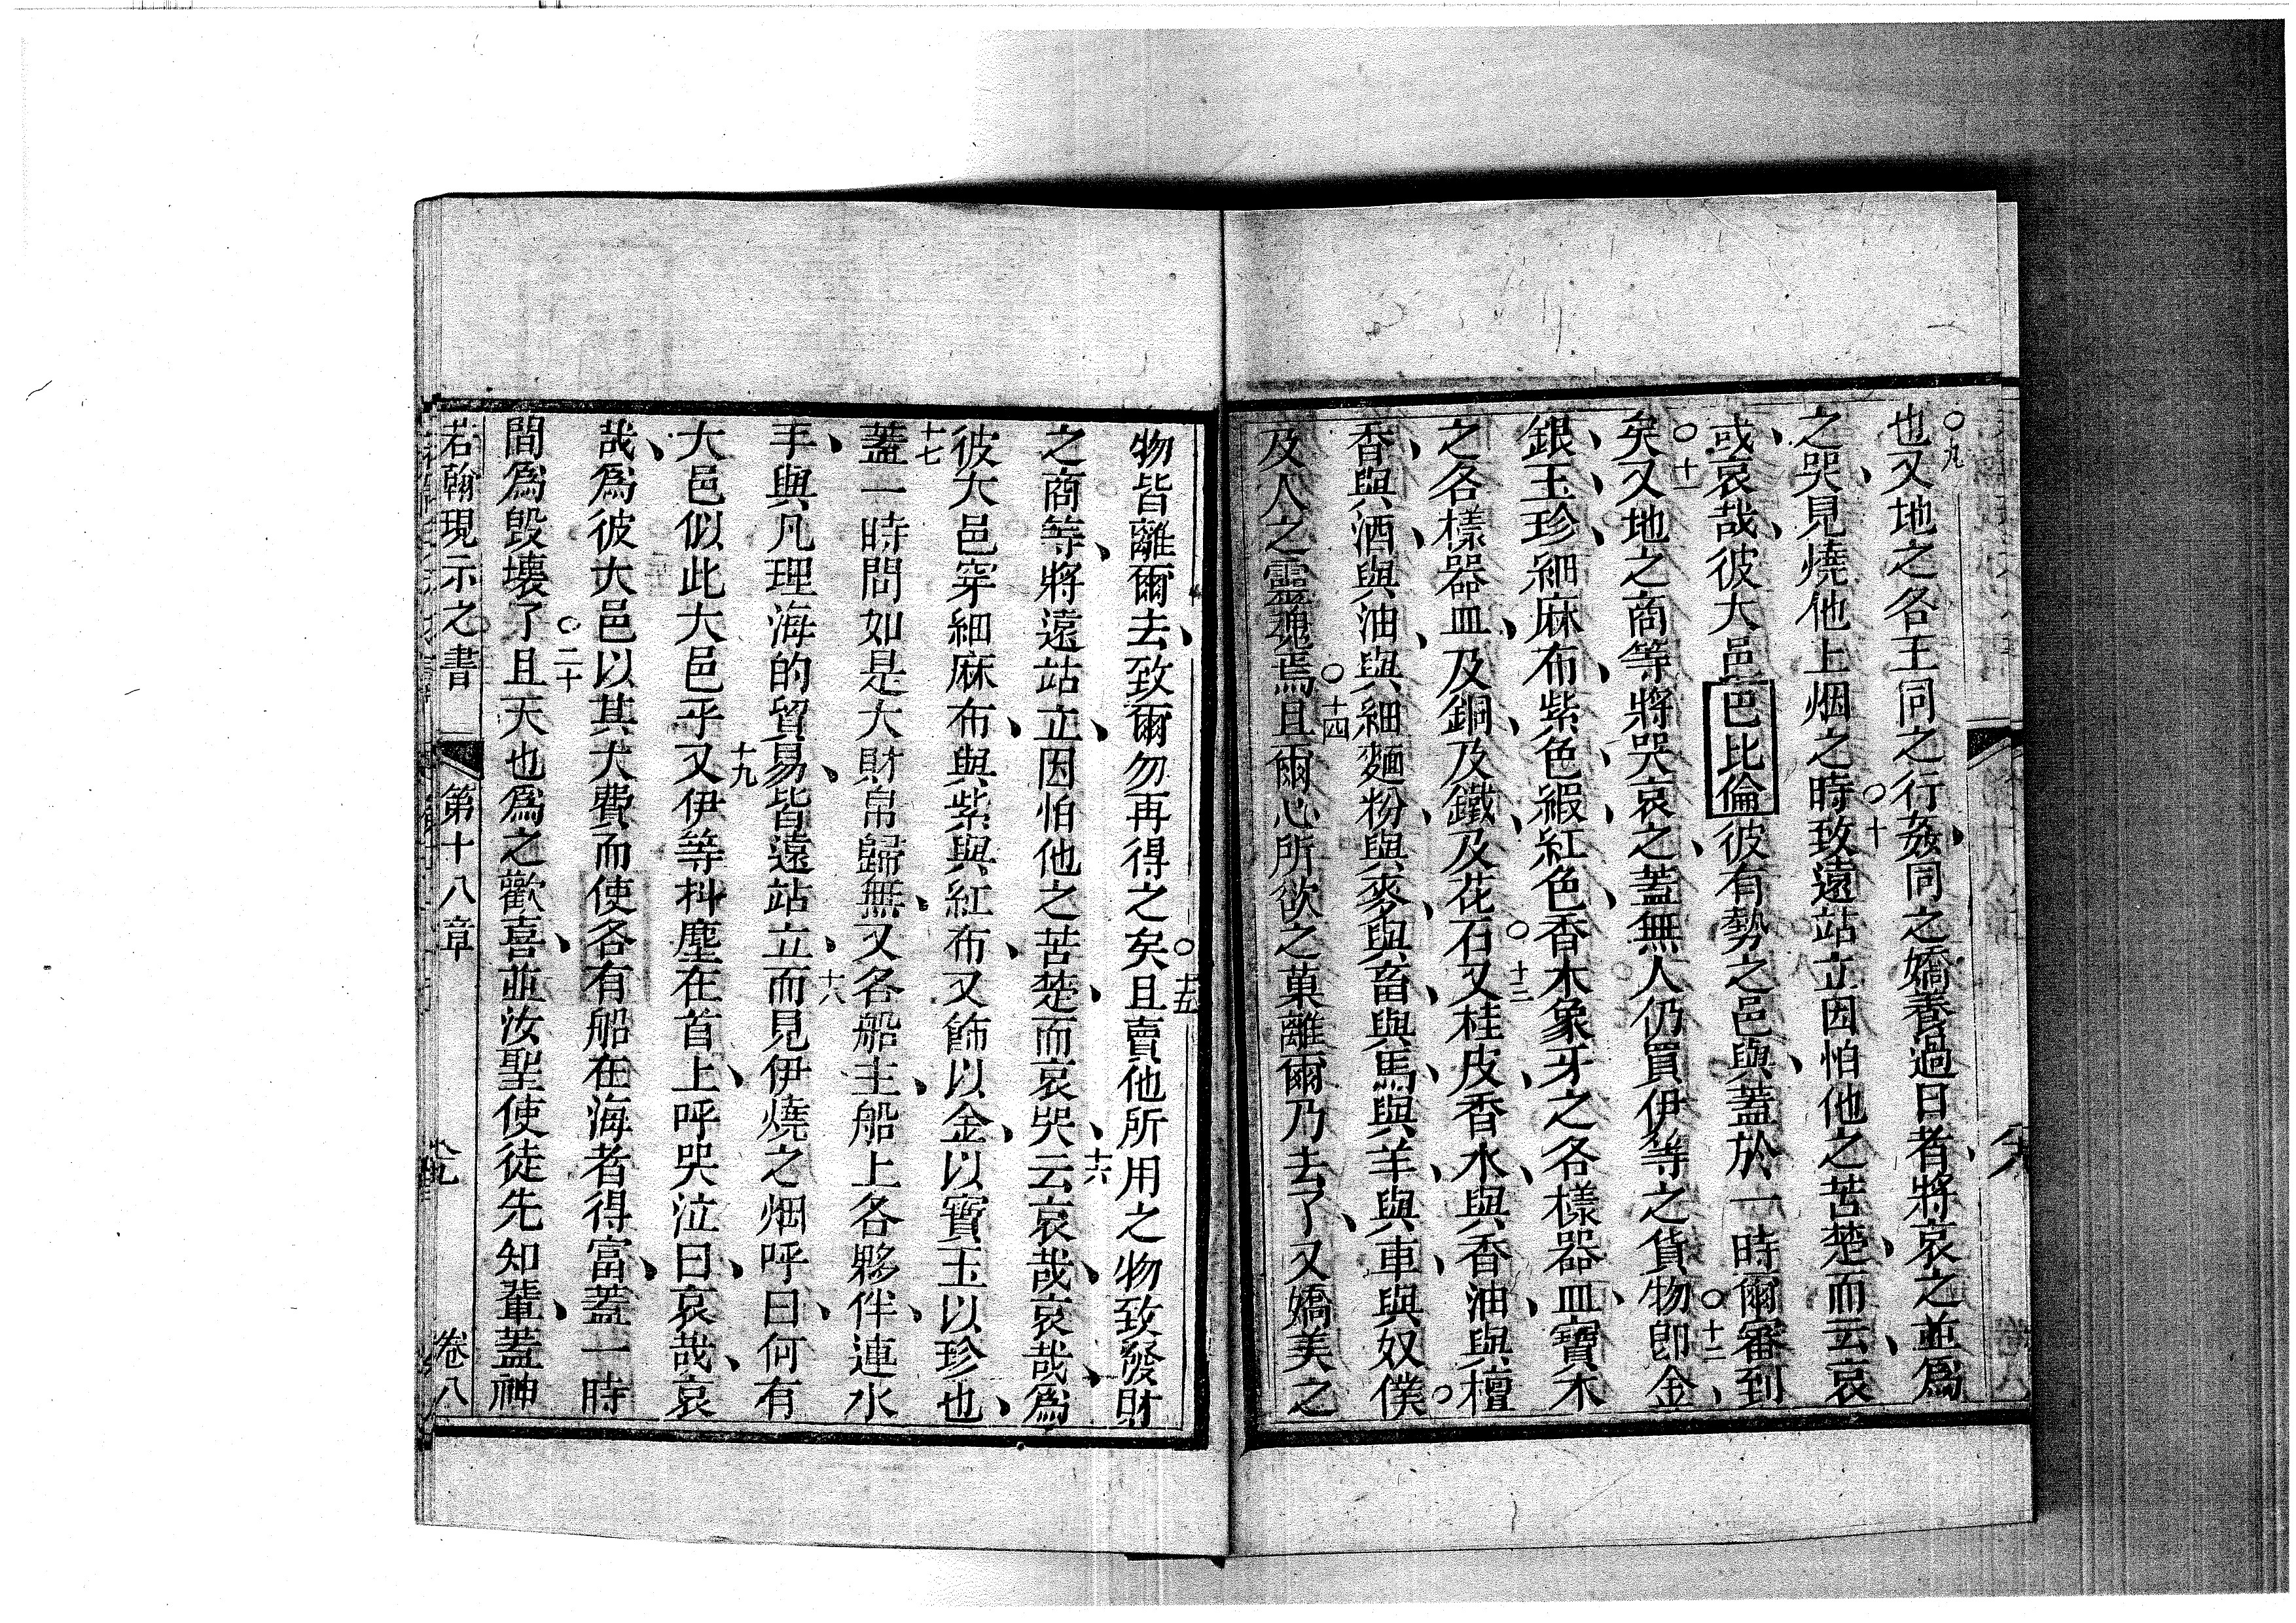 〇九
也又地之各王同之行姦、同之嬌養過日者、將哀之並爲
之哭、見燒他上烟之時、〇十致遠站立因怕他之苦楚、而云、哀
哉、哀哉、彼大邑巴比倫彼有勢之邑與、蓋於一時爾審到
矣〇十一又地之商等將哭哀之、蓋無人仍買伊等之貨物〇十二卽金、
銀、玉、珍、細麻布、紫色、緞、紅色、香木象牙之各樣器皿、寶木
之各樣器皿、及銅、及鐵、及花石〇十三又桂皮、香水、與香油、與檀
香、與酒、與油、與細麵粉、與麥、與畜、與馬、與羊、與車、與奴僕〇
及人之靈魂焉〇十四且爾心所欲之菓離爾乃去了、又嬌美之
物皆離爾去、致爾勿再得之矣〇十五且賣他所用之物致發財
之商等、將遠站立、因怕他之苦楚、而哀哭、十六云哀哉、哀哉、爲
彼大邑穿細麻布、與紫與紅布、又飾以金、以寶玉以珍也、
十七蓋一時間如是大財帛歸無、又各船主、船上各夥伴、連水
手、與凡理海的貿易、皆遠站立、十八而見伊燒之烟呼曰、何有
大邑似此大邑乎十九又伊等抖塵在首上、呼哭泣曰、哀哉、哀
哉、爲彼大邑以其大費而使各有船在海者得富、蓋一時
間爲毀壞了〇二十且天也爲之歡喜、並汝聖使徒先知輩、蓋神
若翰現示之書 第十八章 卷八